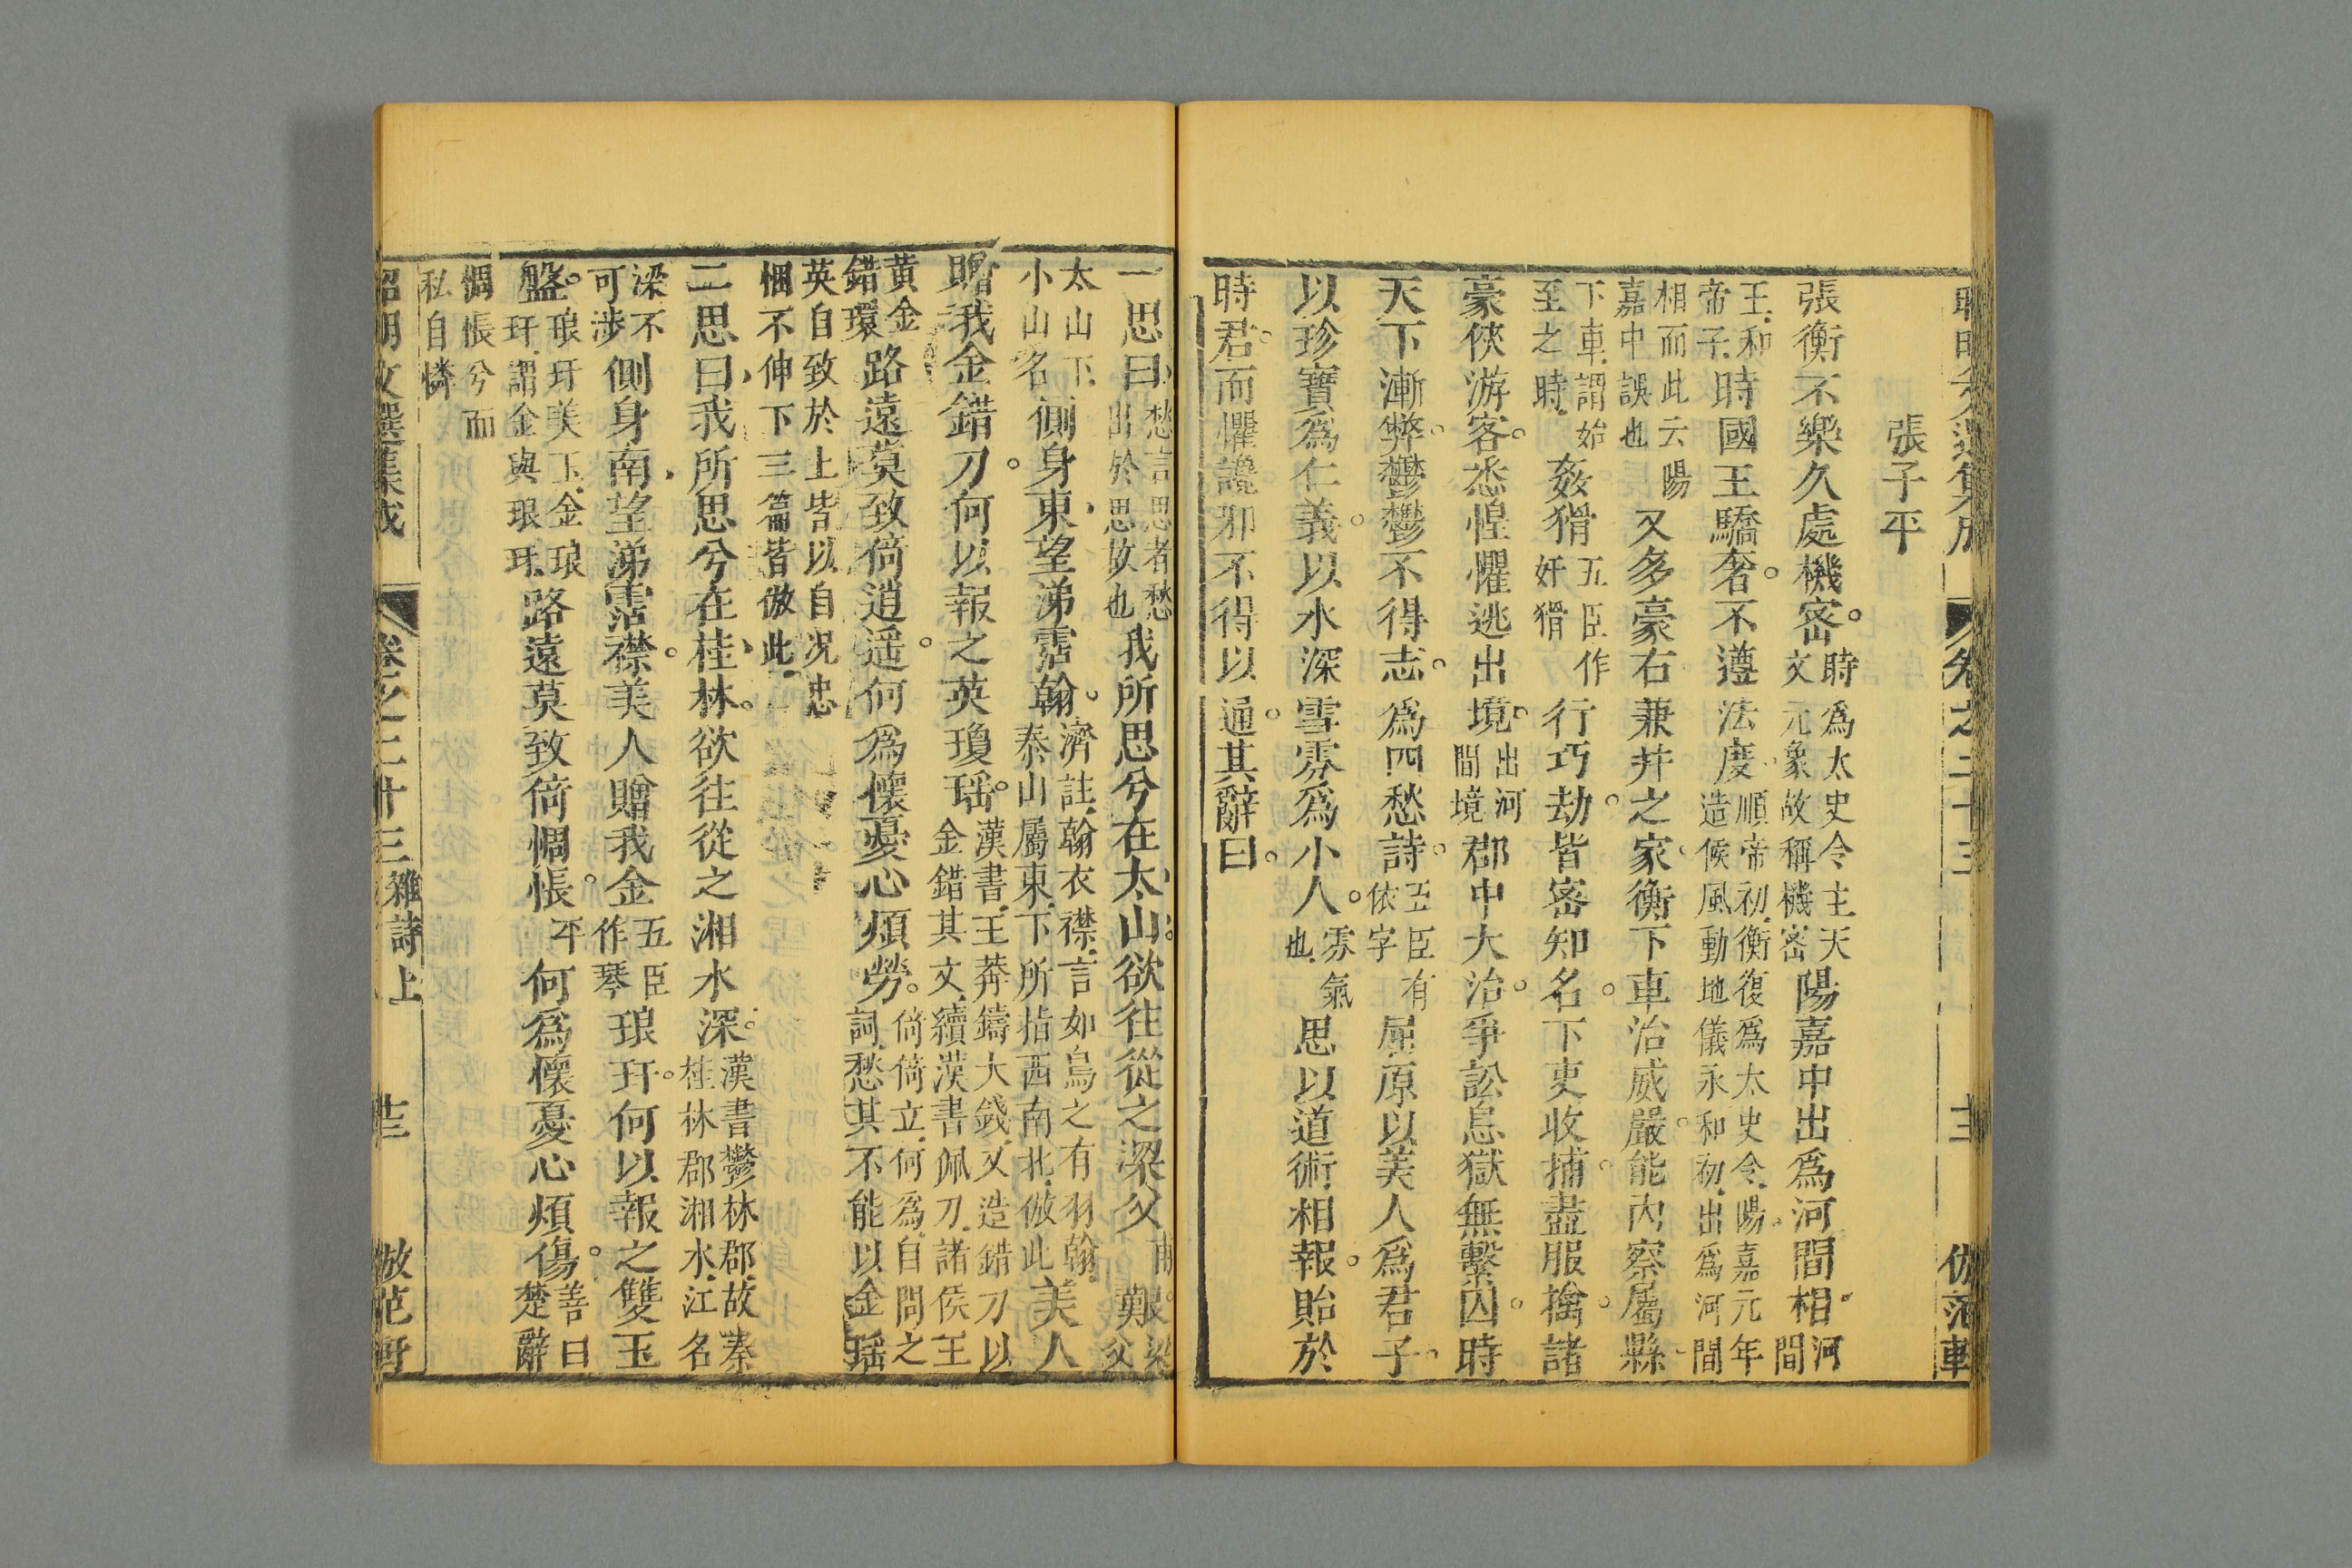 張子平
張衡不樂久處機密時爲太史令主天文元象故稱機密陽嘉中出爲河間相河間
王和帝子時國王驕奢不遵法度順帝初衡復爲太史令陽嘉元年造候風動地儀永和初出爲河間
相而此云陽嘉中誤也又多豪右兼并之家衡下車治威嚴能內察屬縣
下車謂始至之時姦猾五臣作奸猾行巧劫皆密知名下吏收捕盡服擒諸
豪俠游客悉惶懼逃出境出河間境郡中大治爭訟息獄無繫囚時
天下漸弊鬱鬱不得志爲四愁詩五臣有依字屈原以美人爲君子
以珍寶爲仁義以水深雪雰爲小人雰氣也思以道術相報貽於
時君而懼讒邪不得以通其辭曰
一思曰愁言思者愁出於思故也我所思兮在太山欲往從之梁父艱梁父
太山下小山名側身東望涕霑翰濟註翰衣襟言如鳥之有羽翰泰山屬東下所指西南北倣此美人
贈我金錯刀何以報之英瓊瑤漢書王莽鑄大錢又造錯刀以金錯其文續漢書佩刀諸侯王
黃金錯環路遠莫致倚逍遥何爲懷憂心煩勞倚倚立何爲自問之詞愁其不能以金瑤
英自致於上皆以自况忠悃不伸下三篇皆倣此
二思曰我所思兮在桂林欲往從之湘水深漢書鬱林郡故秦桂林郡湘水江名
梁不可涉側身南望涕霑襟美人贈我金五臣作琴琅玕何以報之雙玉
盤琅玕美玉金琅玕謂金與琅玕路遠莫致倚惆悵平何爲懷憂心煩傷善曰楚辭
惆悵兮而私自憐
昭明文選集成 卷之二十三雜詩上 倣范軒